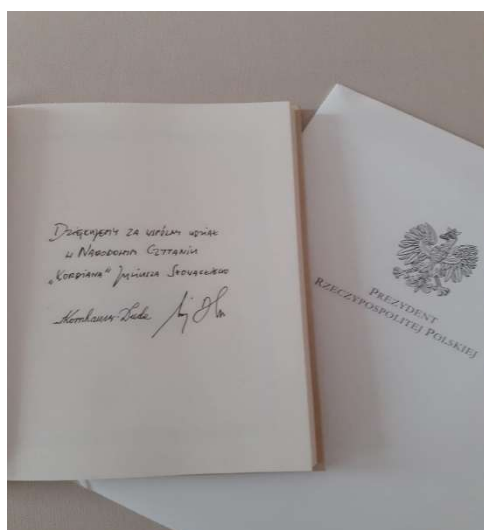 Dziękujemy za wspólny udział
w Narodowym Czytaniu
„Kordiana” Juliusza Słowackiego
Kornhauser-Duda
PREZYDENT
RZECZYPOSPOLITEJ POLSKIEJ